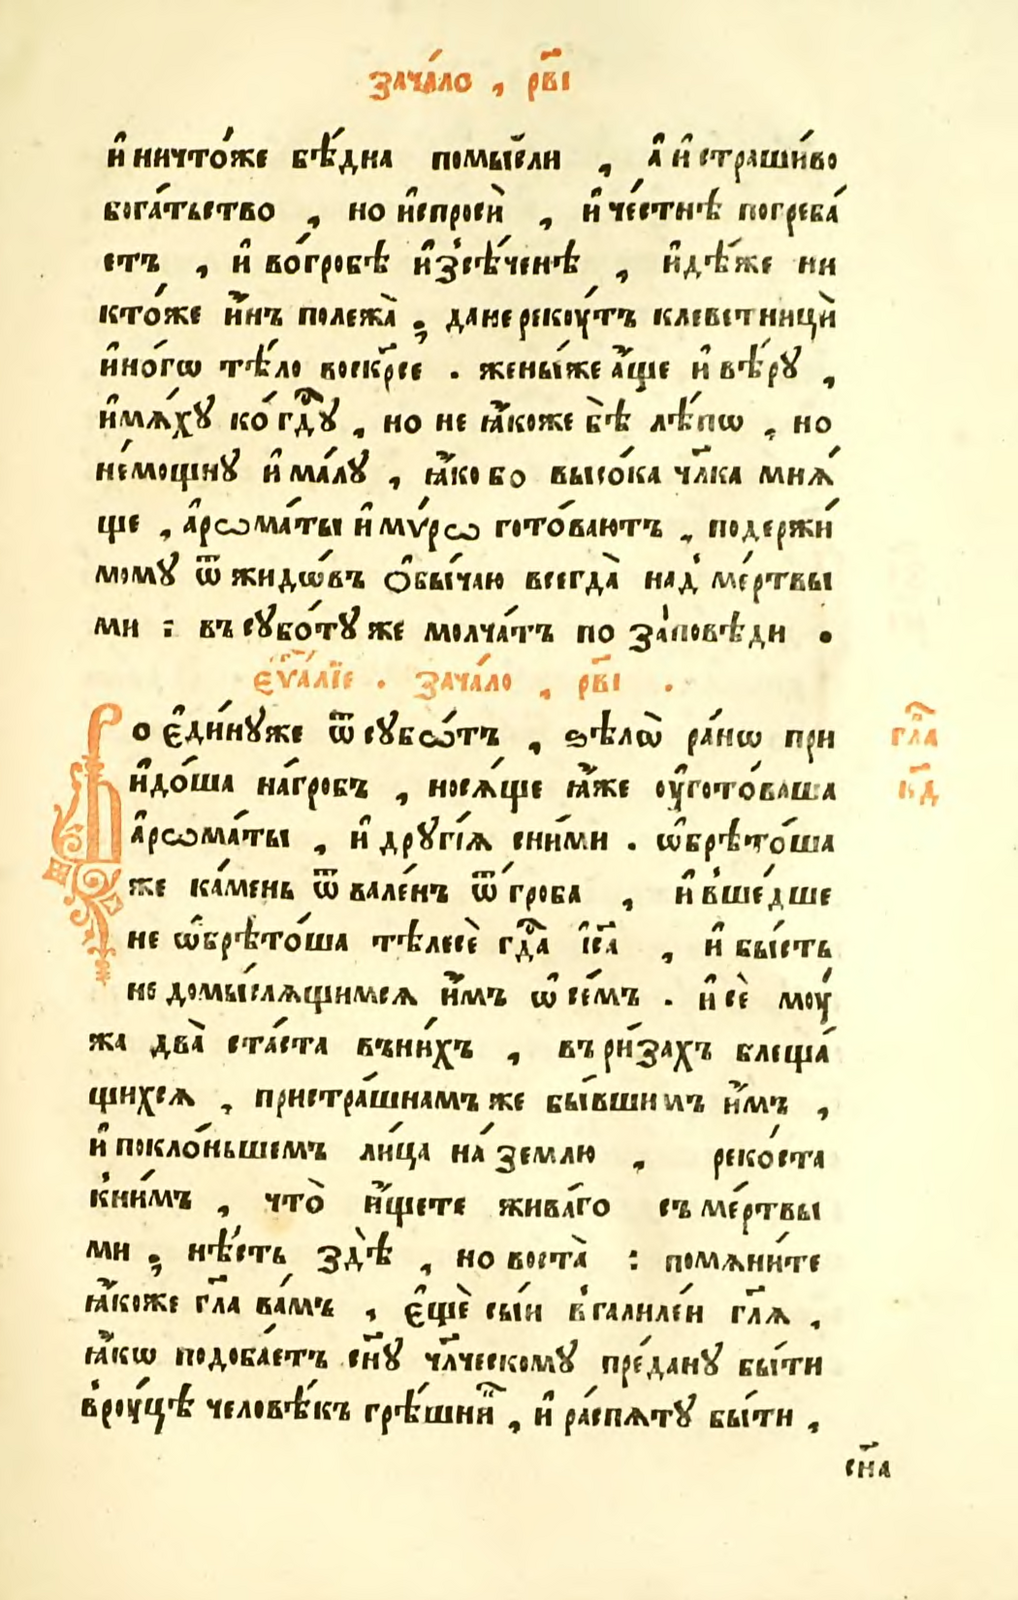 зача́ло , рв҃і
и҆ ничто́же бѣ́дна помы́сли , а҆ и҆ страши́во
бога́тьство , но и҆спросѝ , и҆ че́стнѣ погреба́
етъ , и҆ во́гробѣ и҆зсѣ́ченѣ , и҆дѣ́же ни
кто́же и҆́нъ полежа̀ ; да не реку́тъ клеветницѝ
и҆но́гѡ тѣ́ло воскр҃се . жены́же а҆́ще и҆ вѣ́рꙋ ,
и҆мѧ́хꙋ ко́ гдⷭ҇ꙋ , но не ꙗ҆́коже бѣ̀ лѣ́пѡ , но
не́мощнꙋ и҆ ма́лꙋ , ꙗ҆́ко бо высо́ка чл҃ка мнѧ́
ще , а҆рѡма́ты и҆ мѵ́рѡ гото́ваютъ , по держи́
момꙋ ѿ жидѡ́въ ѻ҆бы́чаю всегда̀ над̾ ме́ртвы
ми : въ сꙋбо́тꙋ же молча́тъ по за́повѣди .
є҆ѵⷢ҇а́лїе . зача́ло , рв҃і .
Во є҆ди́нꙋже ѿ сꙋбѡ́тъ , ѕѣлѡ̀ ра́нѡ при
и҆до́ша на́гробъ , носѧ́ще ꙗ҆́же оу҆гото́ваша
а҆рѡма́ты , и҆ дрꙋгі́ѧ сни́ми . ѡ҆брѣто́ша
же ка́мень ѿвале́нъ ѿ гроба , и҆ в̾ше́дше
не ѡ҆брѣто́ша тѣлесѐ гдⷭ҇а і҆с҃а , и҆ бы́сть
не домы́слѧщимсѧ и҆́мъ ѡ҆ се́мъ . и҆ сѐ моу́
жа два̀ ста́ста въни́хъ , въ ри́захъ блеща́
щихсѧ , пристра́шнамъ же бы́вшимъ и҆́мъ ,
и҆ покло́ньшемъ ли́ца на́ землю , реко́ста
к̾ни́мъ , что̀ и҆́щете жива́го съ ме́ртвы
ми ; нѣ́сть здѣ̀ , но воста̀ : помѧни́те
ꙗ҆́коже гл҃а ва́мъ , є҆щѐ сы́и в̾галиле́и гл҃ѧ ,
ꙗ҆́кѡ подоба́етъ сн҃ꙋ чл҃ческомꙋ пре́данꙋ бы́ти
в̾роу́цѣ человѣ́къ грѣ́шниⷯ , и҆ ра́спѧтꙋ бы́ти ,
гла
к҃д
сн҃а